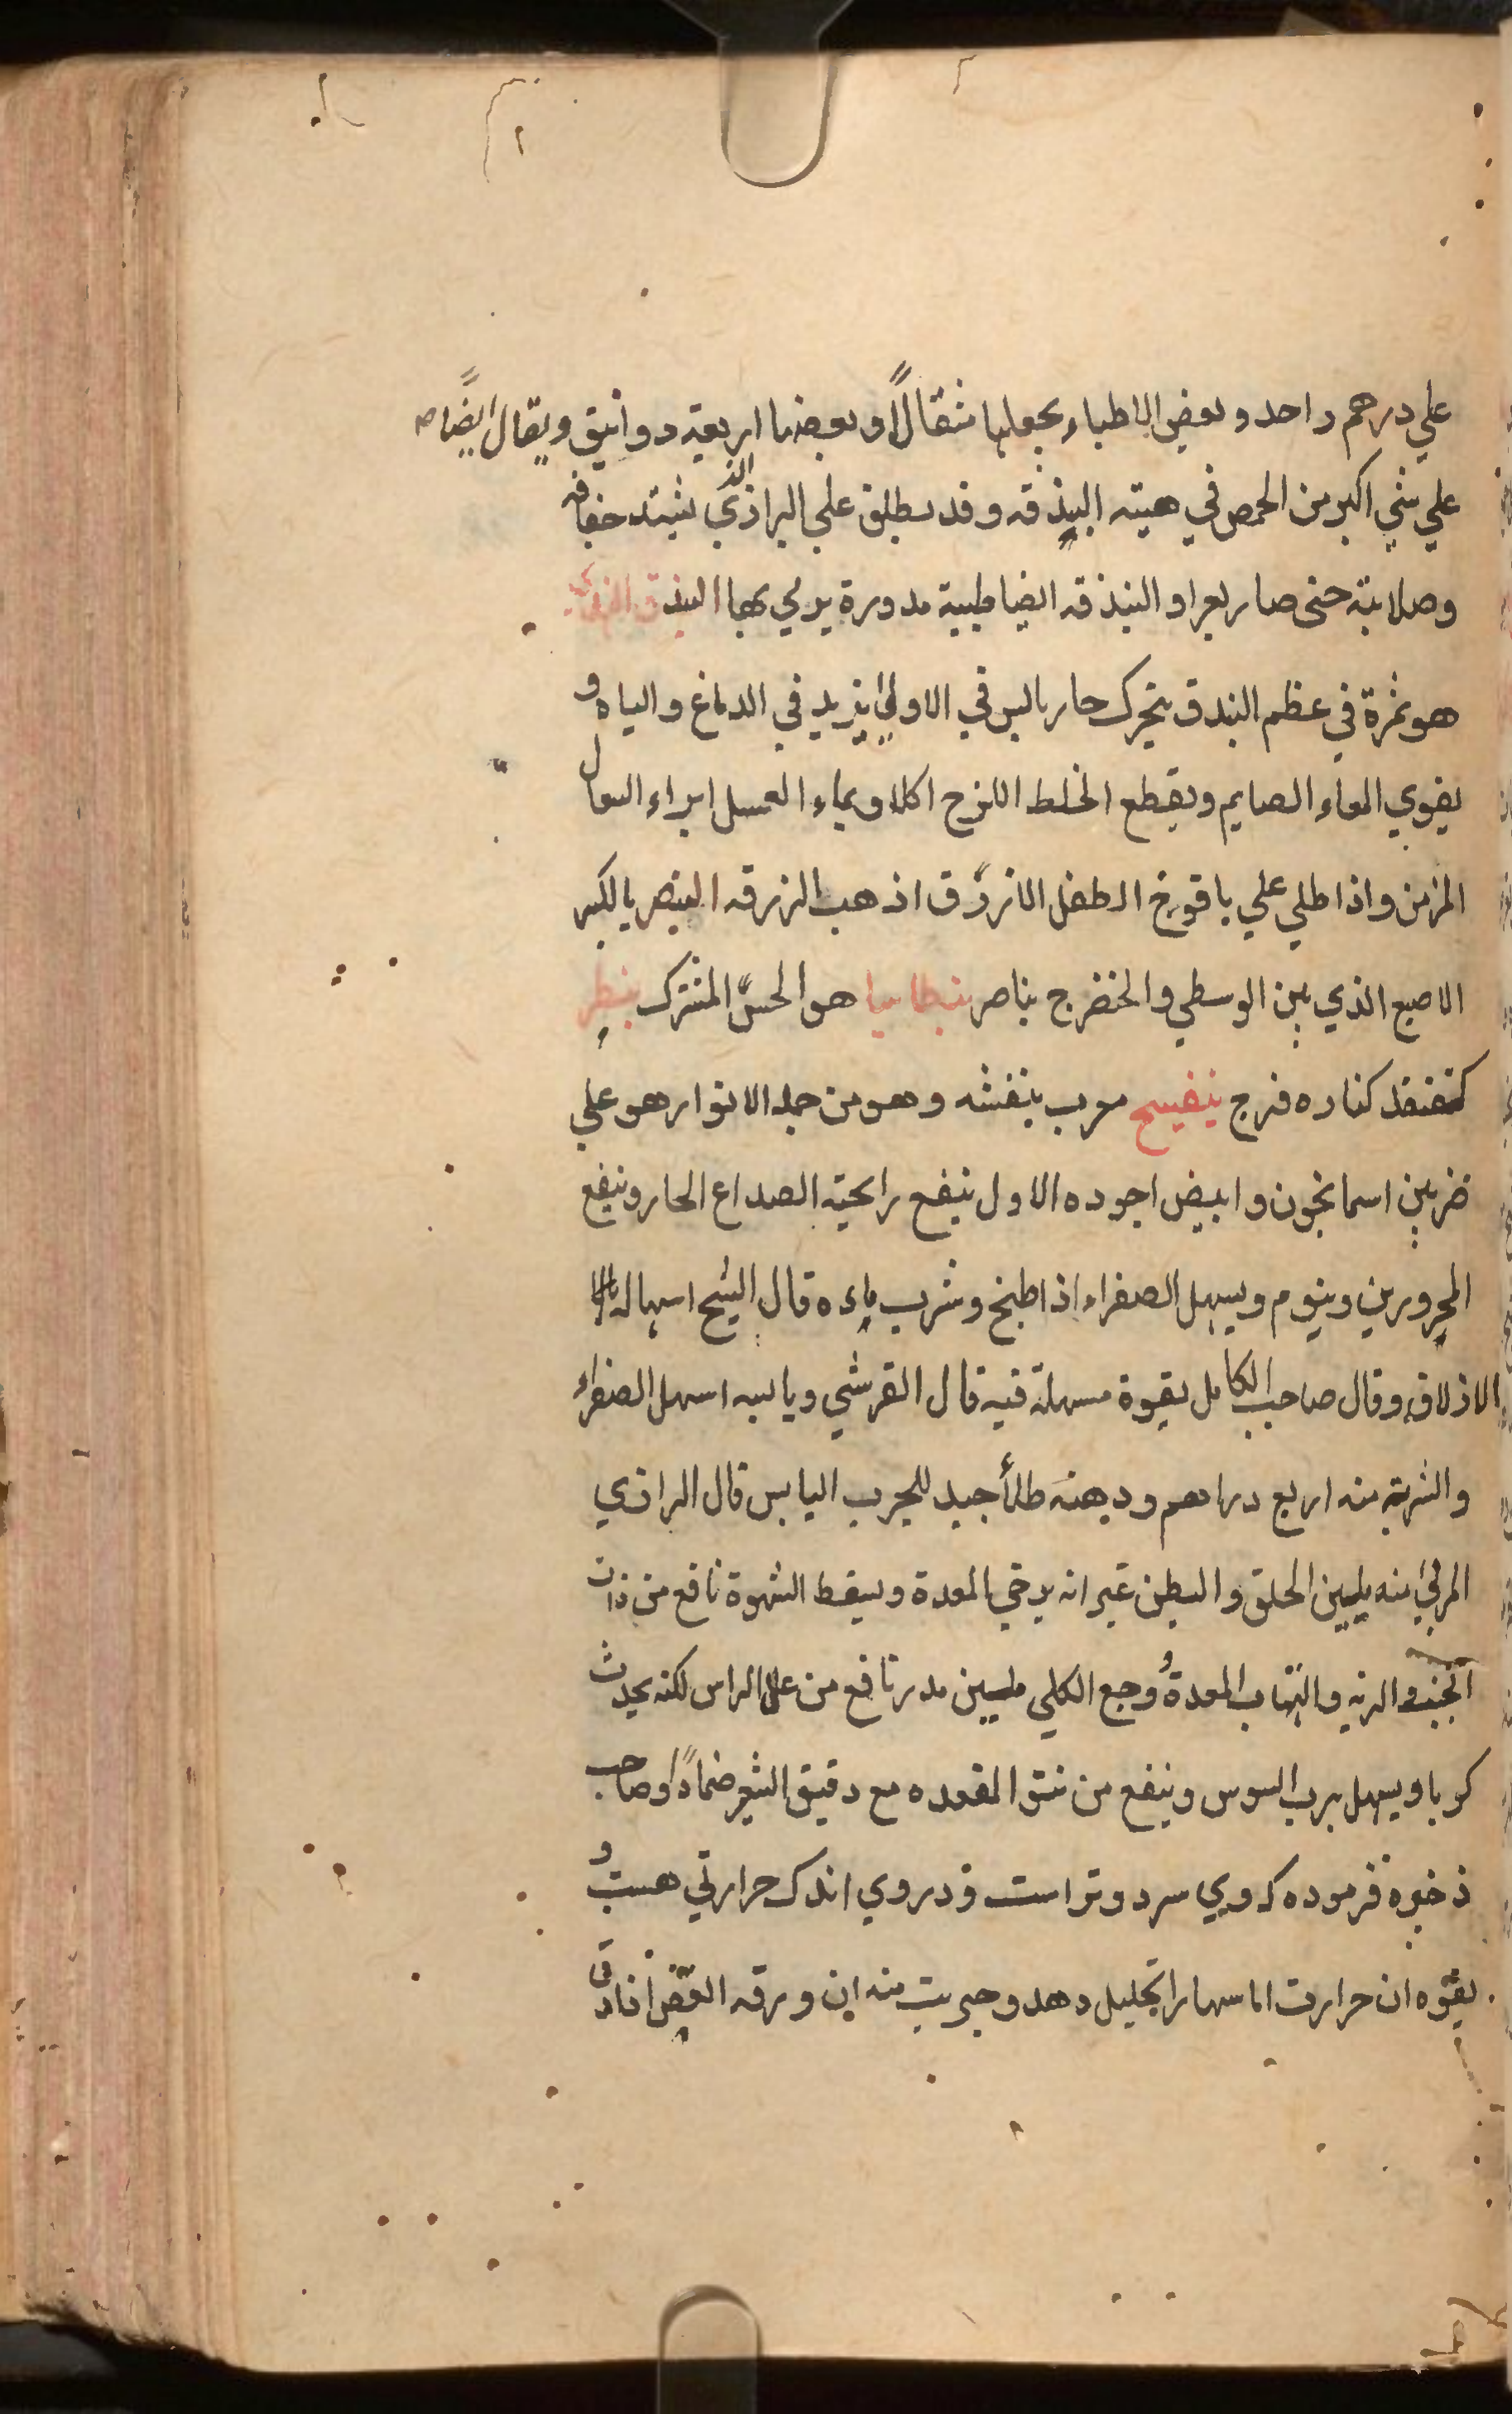 علي درهم واحد وبعض الاطباء يجعلها مثقالاً وبعضها اربعة دوانيق ويقال ايضًا
علي شي اكبر من الحمص في هيئه البندقه وقد يطلق علي البراز الذي يشتد جفافه
وصلابته حتى صار بعرا والبندقه ايضا طينة مدورة يرمي بها البندق الهندي
هو ثمرة في عظم البندق يتحرك حار يابس في الاولي يزيد في الدماغ والباه و
يقوي المعاء الصايم ويقطع الخلط اللزج اكلا وبماء العسل ابراء السعال
المزمن واذا طلي علي يافوخ الطفل الازرق اذهب الزرقه البنصر بالكسر
الاصبع الذي بين الوسطي والخنضر ج بناصر بنطاسيا هو الحسّ المشترك بنظر
كقنفذ كناره فرج بنفسج معرب بنفشه وهو من جمله الانوار هو علي
ضربين اسمانجون وابيض اجوده الاول ينفع رائحته الصداع الحار وينفع
المحرورين وينوم ويسهل الصفراء اذا طبخ وشرب ماءه قال الشيخ اسهاله بالا
الازلاق وقال صاحب الكامل بقوة مسهلة فيه قال القرشي ويابسه اسهل الصفراء
والشربة منه اربع دراهم ودهنه طلأ جيد للجرب اليابس قال الرازي
المربي منه يلين الحلق والبطن غير انه يرخي المعدة ويسقط الشهوة نافع من ذات
الجنب والريه والتهاب المعدة و وجع الكلي ملين مدر نافع من علل الراس لكنه يحدث
كربا ويسهل برب السوس وينفع من نتو المقعده مع دقيق الشعير ضمادًا وصاحب
ذخيره فرموده كه وي سرد وتر است ودر وي اندك حرارتي هست و
بقوه ان حرارت اماسها را تحليل دهد وجربت منه ان ورقه الغض اذا دق